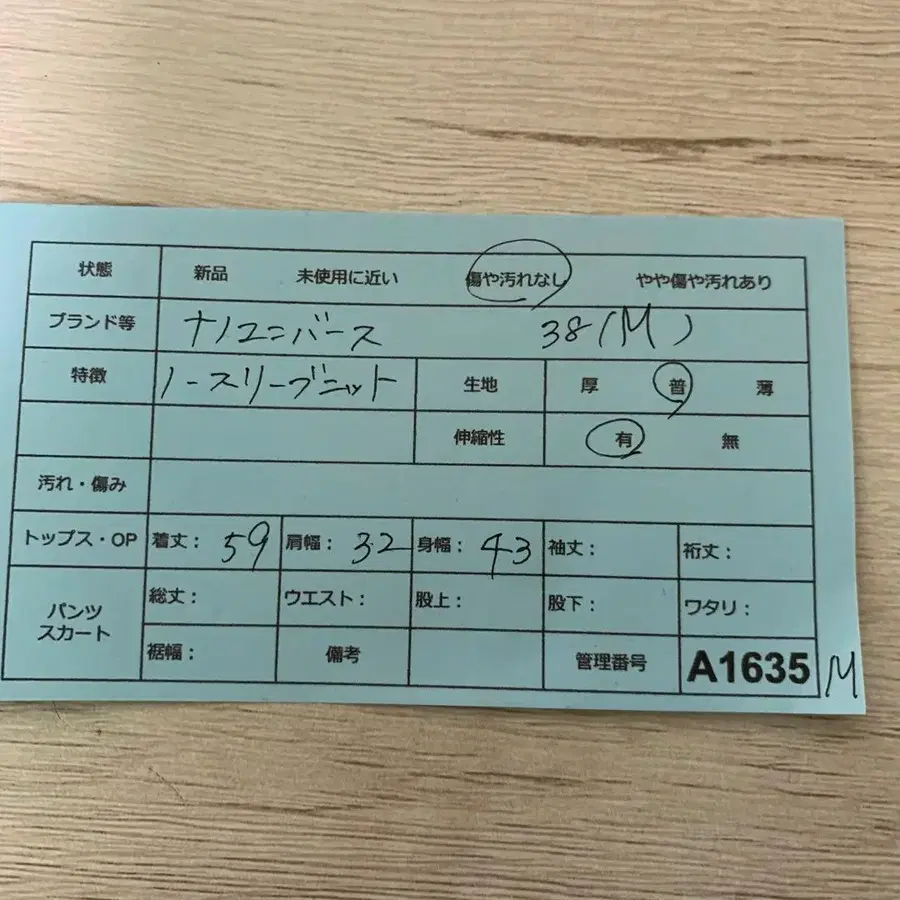 状態 新品 未使用に近い 傷や汚れなし やや傷や汚れあり
ブランド等 ナノユニバース 38(M)
特徴 ノースリーブニット 生地 厚 普 薄
伸縮性 有 無
汚れ・傷み
トップス・OP 着丈: 59 肩幅: 32 身幅: 43 袖丈: 裄丈:
パンツ スカート 総丈: ウエスト: 股上: 股下: ワタリ:
裾幅: 備考 管理番号 A1635 M